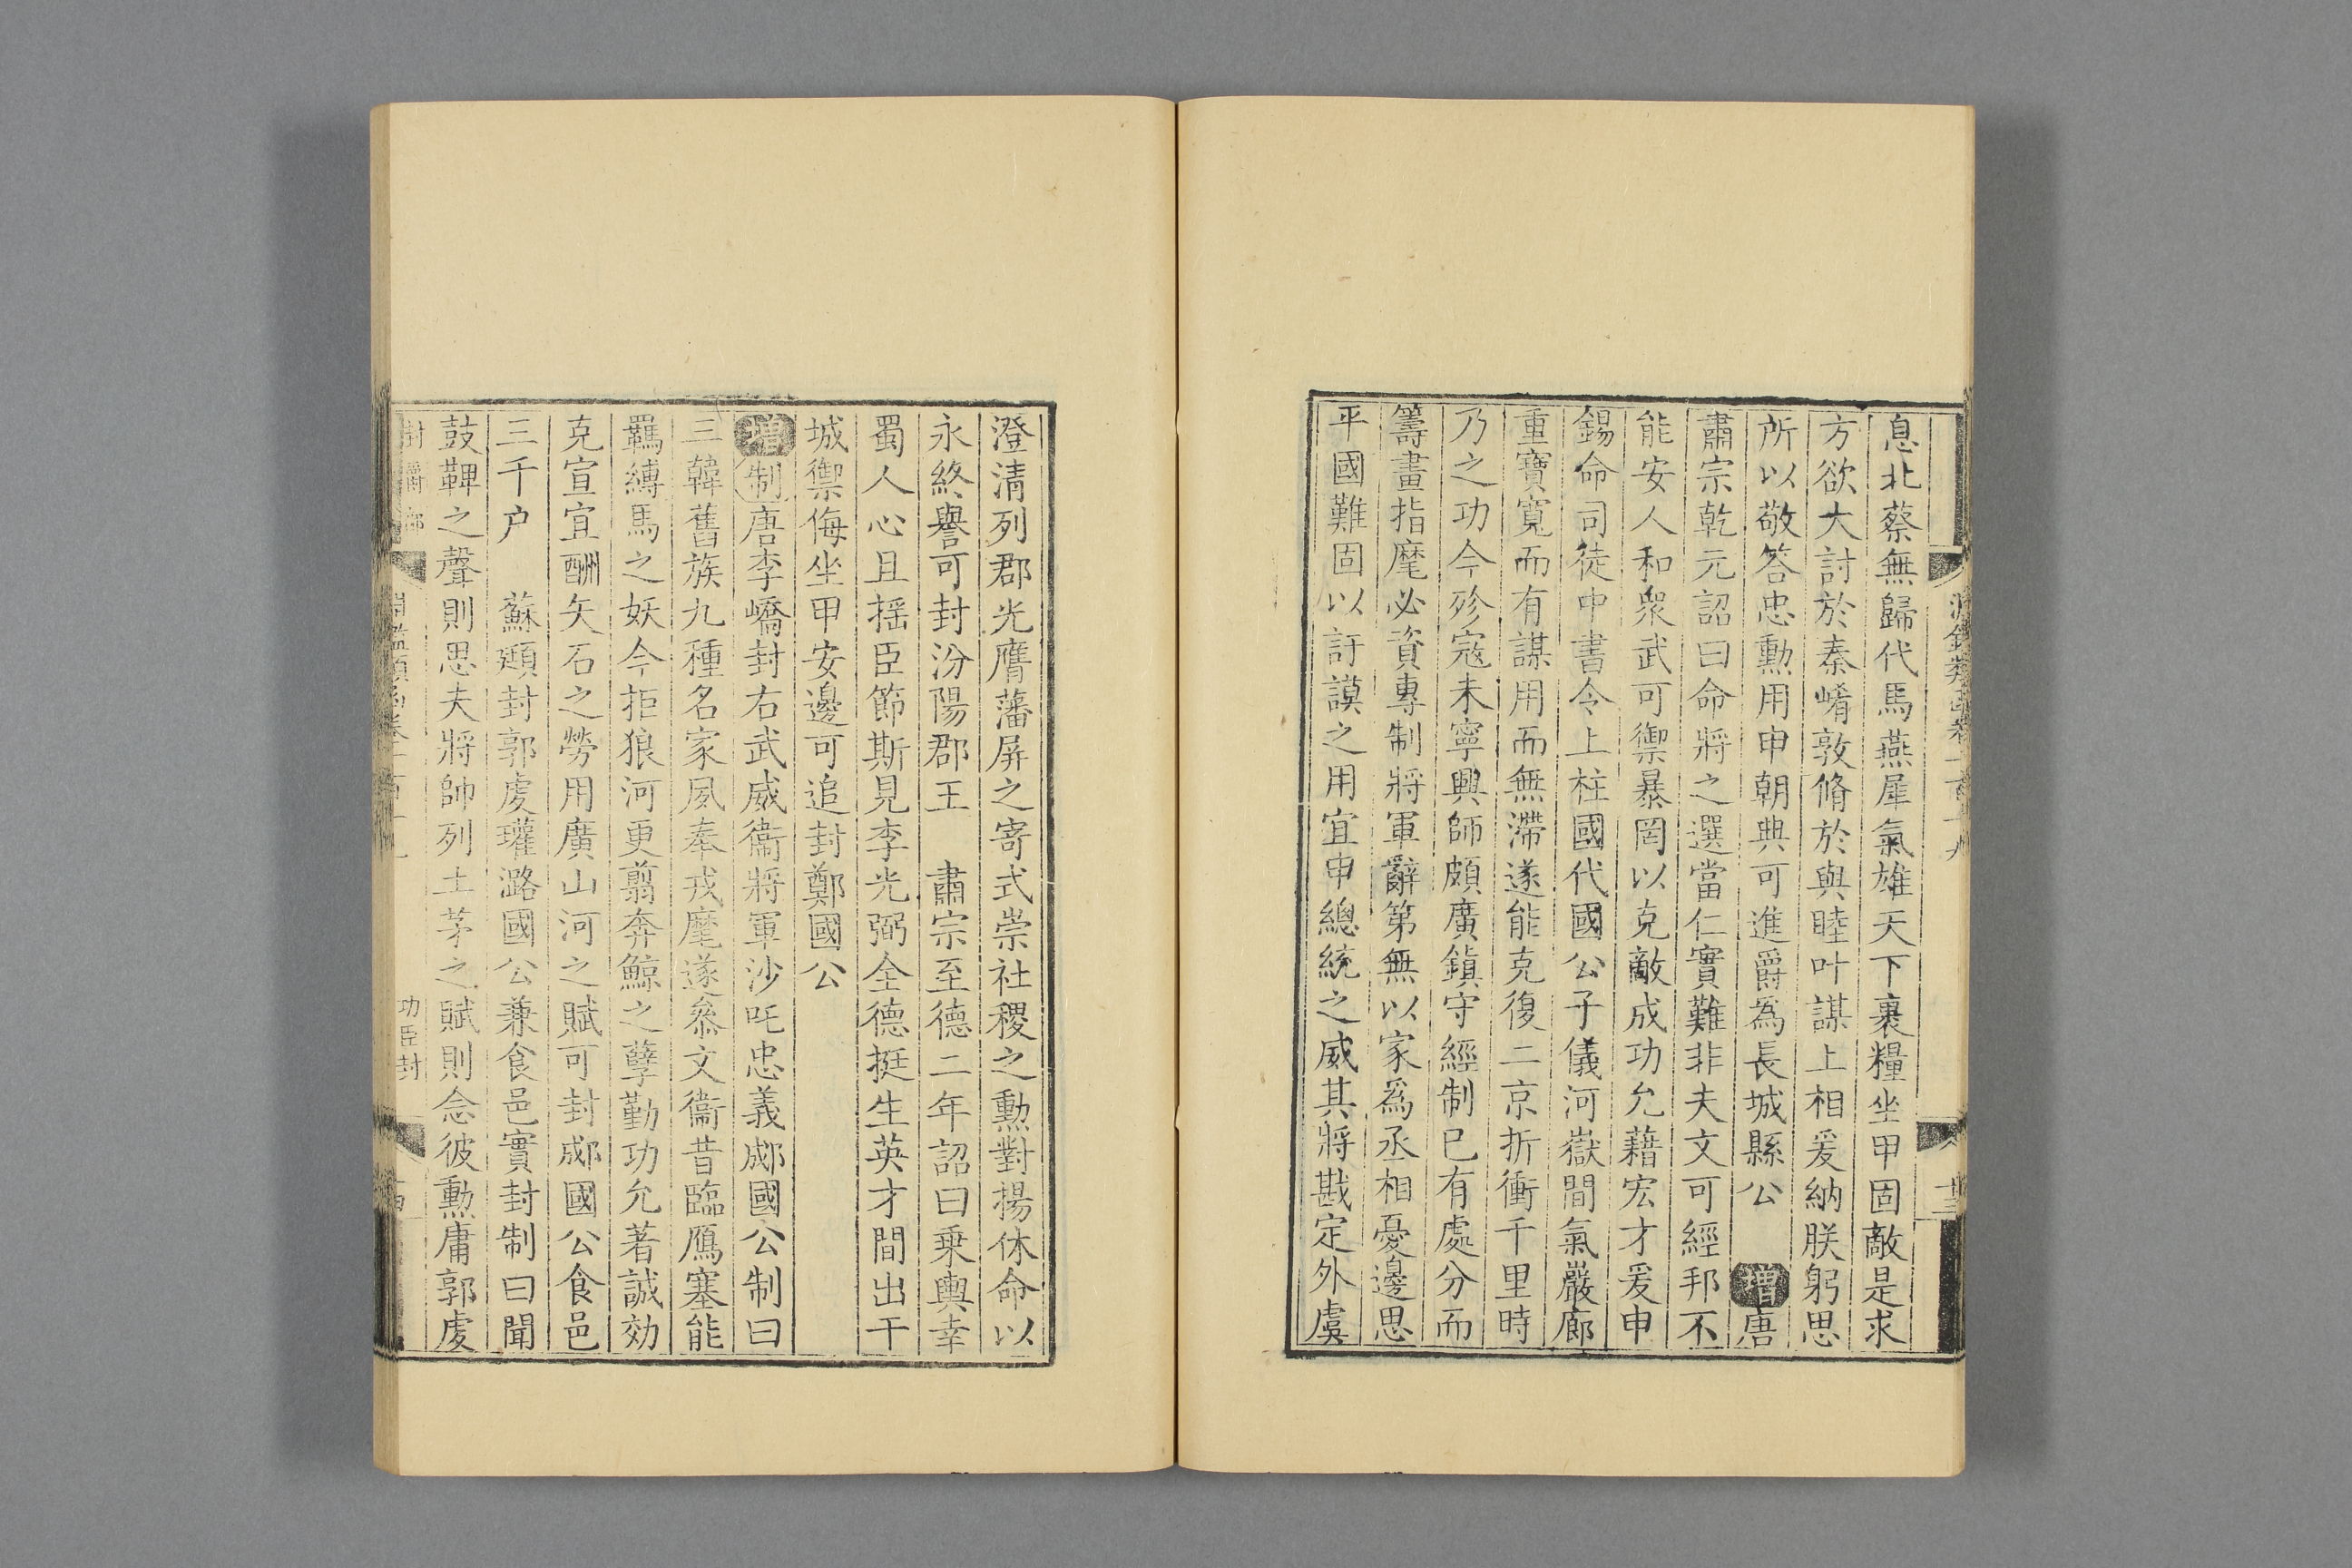 息北蔡無歸代馬燕犀氣雄天下裹糧坐甲固敵是求
方欲大討於秦崤敦脩於與睦叶謀上相爰納朕躬思
所以敬答忠勳用申朝典可進爵爲長城縣公 增唐
肅宗乾元詔曰命將之選當仁實難非夫文可經邦不
能安人和衆武可禦暴罔以克敵成功允藉宏才爰申
錫命司徒中書令上柱國代國公子儀河嶽間氣嚴廊
重寶寬而有謀用而無滯遂能克復二京折衝千里時
乃之功今殄寇未寧興師頗廣鎮守經制已有處分而
籌畫指麾必資專制將軍辭第無以家爲丞相憂邊思
平國難固以訏謨之用宜申總統之威其將戡定外虞
澄清列郡光膺藩屏之寄式崇社稷之勳對揚休命以
永終譽可封汾陽郡王 肅宗至德二年詔曰乗輿幸
蜀人心且揺臣節斯見李光弼全德挺生英才間出干
城禦侮坐甲安邊可追封鄭國公
增制唐李嶠封右武威衞將軍沙吒忠義郕國公制曰
三韓舊族九種名家夙奉戎麾遂叅文衞昔臨鴈塞能
羈縛馬之妖今拒狼河更翦奔鯨之孽勤功允著誠効
克宣宜酬矢石之勞用廣山河之賦可封郕國公食邑
三千户 蘇頲封郭虔瓘潞國公兼食邑實封制曰聞
鼓鞞之聲則思夫將帥列土茅之賦則念彼勳庸郭虔
功臣封